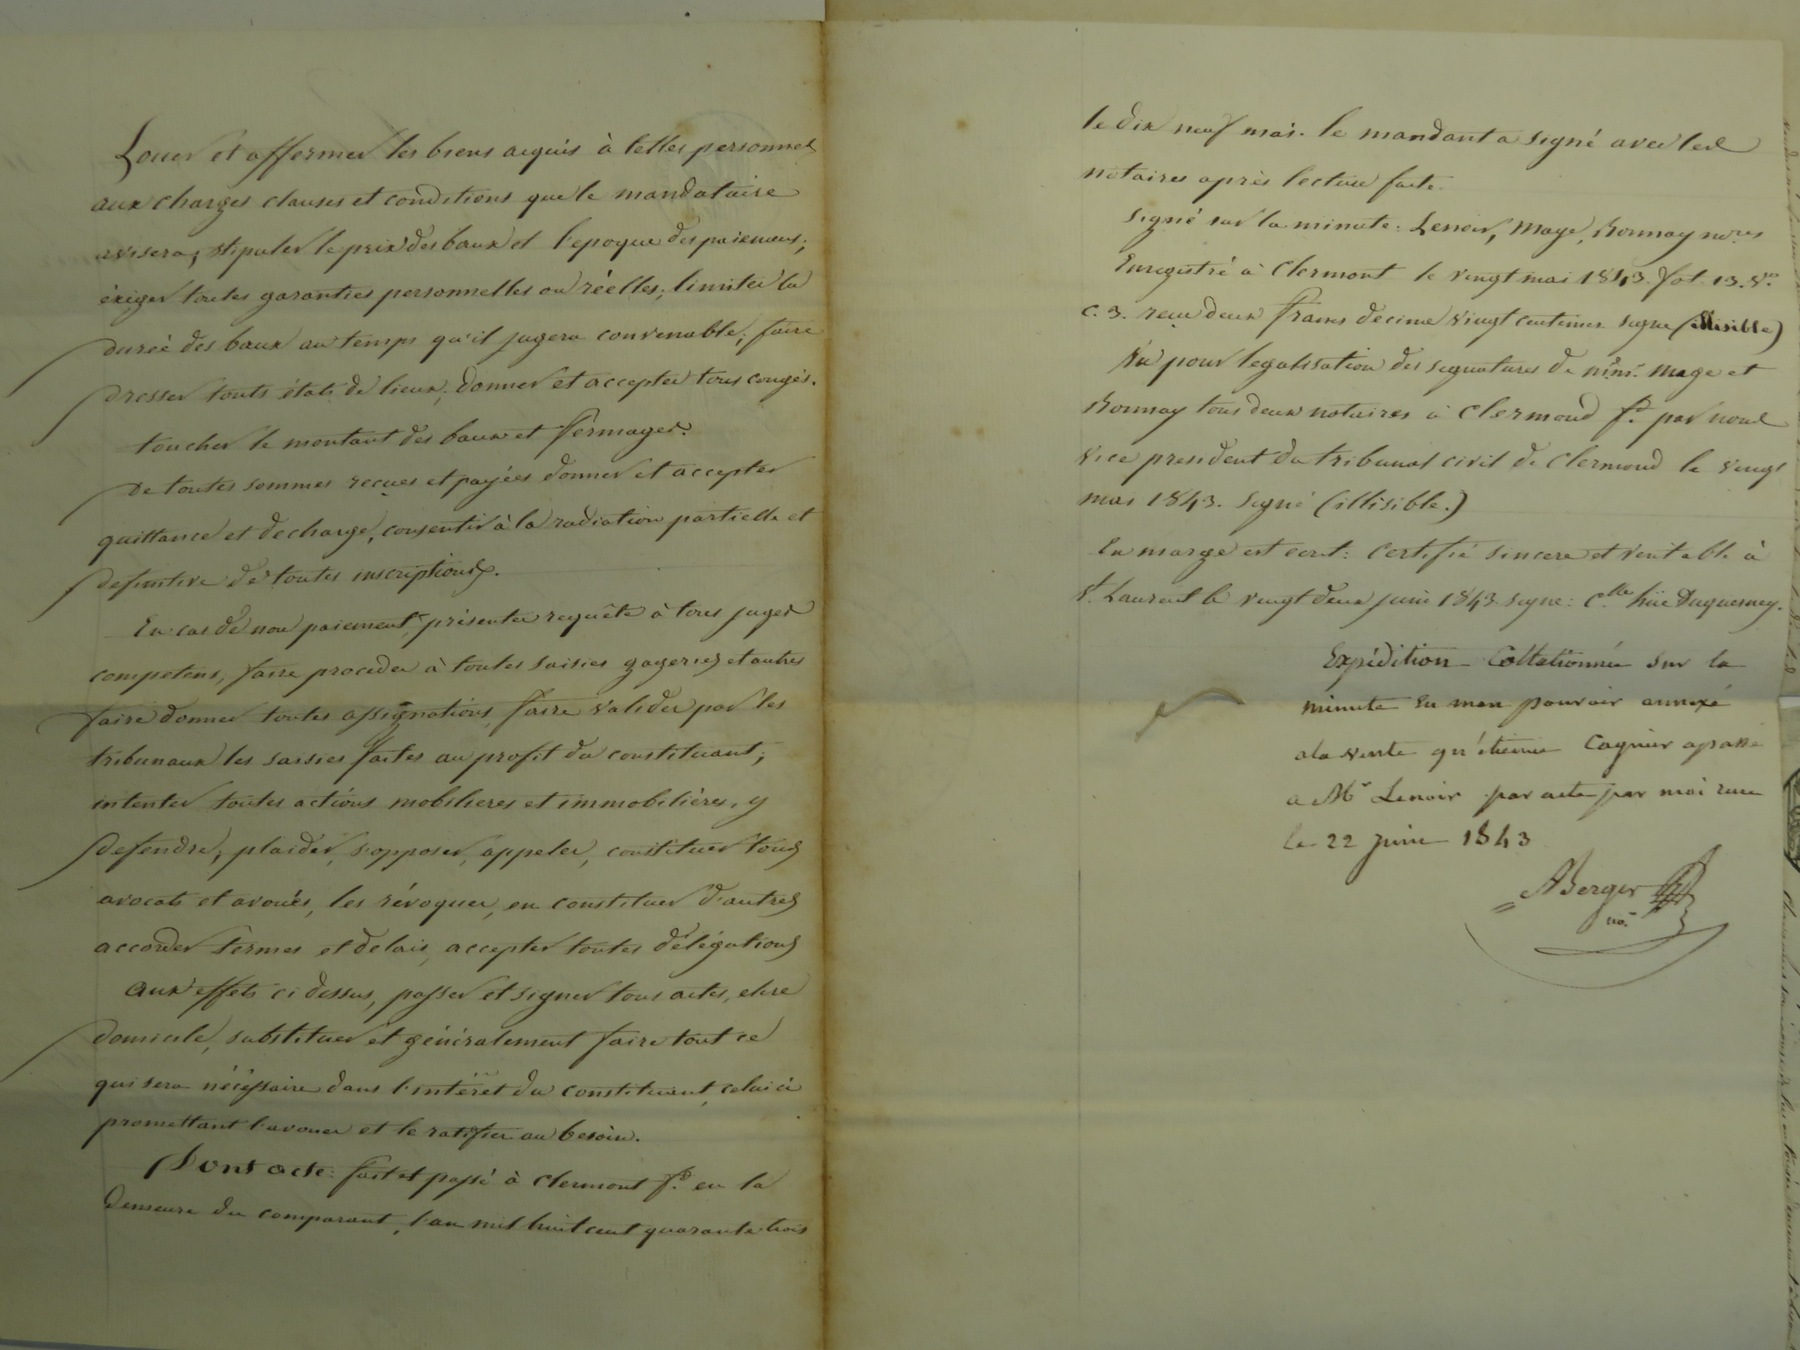 Louer et affermer les biens acquis à telles personnes
aux charges clauses et conditions que le mandataire
avisera, stipuler le prix des baux et l'epoque des paiemens;
éxiger toutes garanties personnelles ou réelles; limiter la
durée des baux au temps qu'il jugera convenable; faire
dresser touts états de lieux; donner et accepter tous congés.
toucher le montant des baux et fermages.
De toutes sommes reçues et payées donner et accepter
quittance et decharge, consentir à la radiation partielle et
definitive de toutes inscriptions.
En cas de non paiement, présenter requête à tous juges
competens, faire proceder à toutes saisies gageries et autres
faire donner toutes assignations, faire valider par les
tribunaux les saisies faites au profit du constituant;
intenter toutes actions mobilieres et immobilières, y
defendre, plaider, s'opposer, appeler, constituer tous
avocats et avoués, les révoquer, en constituer d'autres
accorder termes et delais, accepter toutes délégations
aux effets ci dessus, passer et signer tous actes, elire
domicile, substituer et généralement faire tout ce
qui sera nécessaire dans l'intérêt du constituant, celui ci
promettant l'avouer et le ratifier au besoin.
Dont acte: fait et passé à Clermont fd. en la
demeure du comparant, l'an mil huit cent quarante trois
le dix neuf mai. le mandant a signé avec les
notaires après lecture faite.
Signé sur la minute: Lenoir, Mage, Bonnay nores
Enregistré à Clermont le vingt mai 1843. fol. 13. Vo
C. 3. reçu deux francs decime vingt centimes. Signé (illisible)
Vu pour legalisation des signatures de mm. Mage et
Bonnay tous deux notaires à Clermond fd. par nous
vice president du tribunal civil de Clermond le vingt
mai 1843. Signé (illisible.)
En marge est ecrit: Certifié sincere et veritable à
St. Laurent le vingt deux juin 1843 signé: Clle hüe Duquesney.
Expédition Collationnée sur la
minute en mon pouvoir annexé
a la vente qu'étienne Cagnier a passé
a Mr Lenoir par acte par moi recu
le 22 juin 1843
ABerger
no.